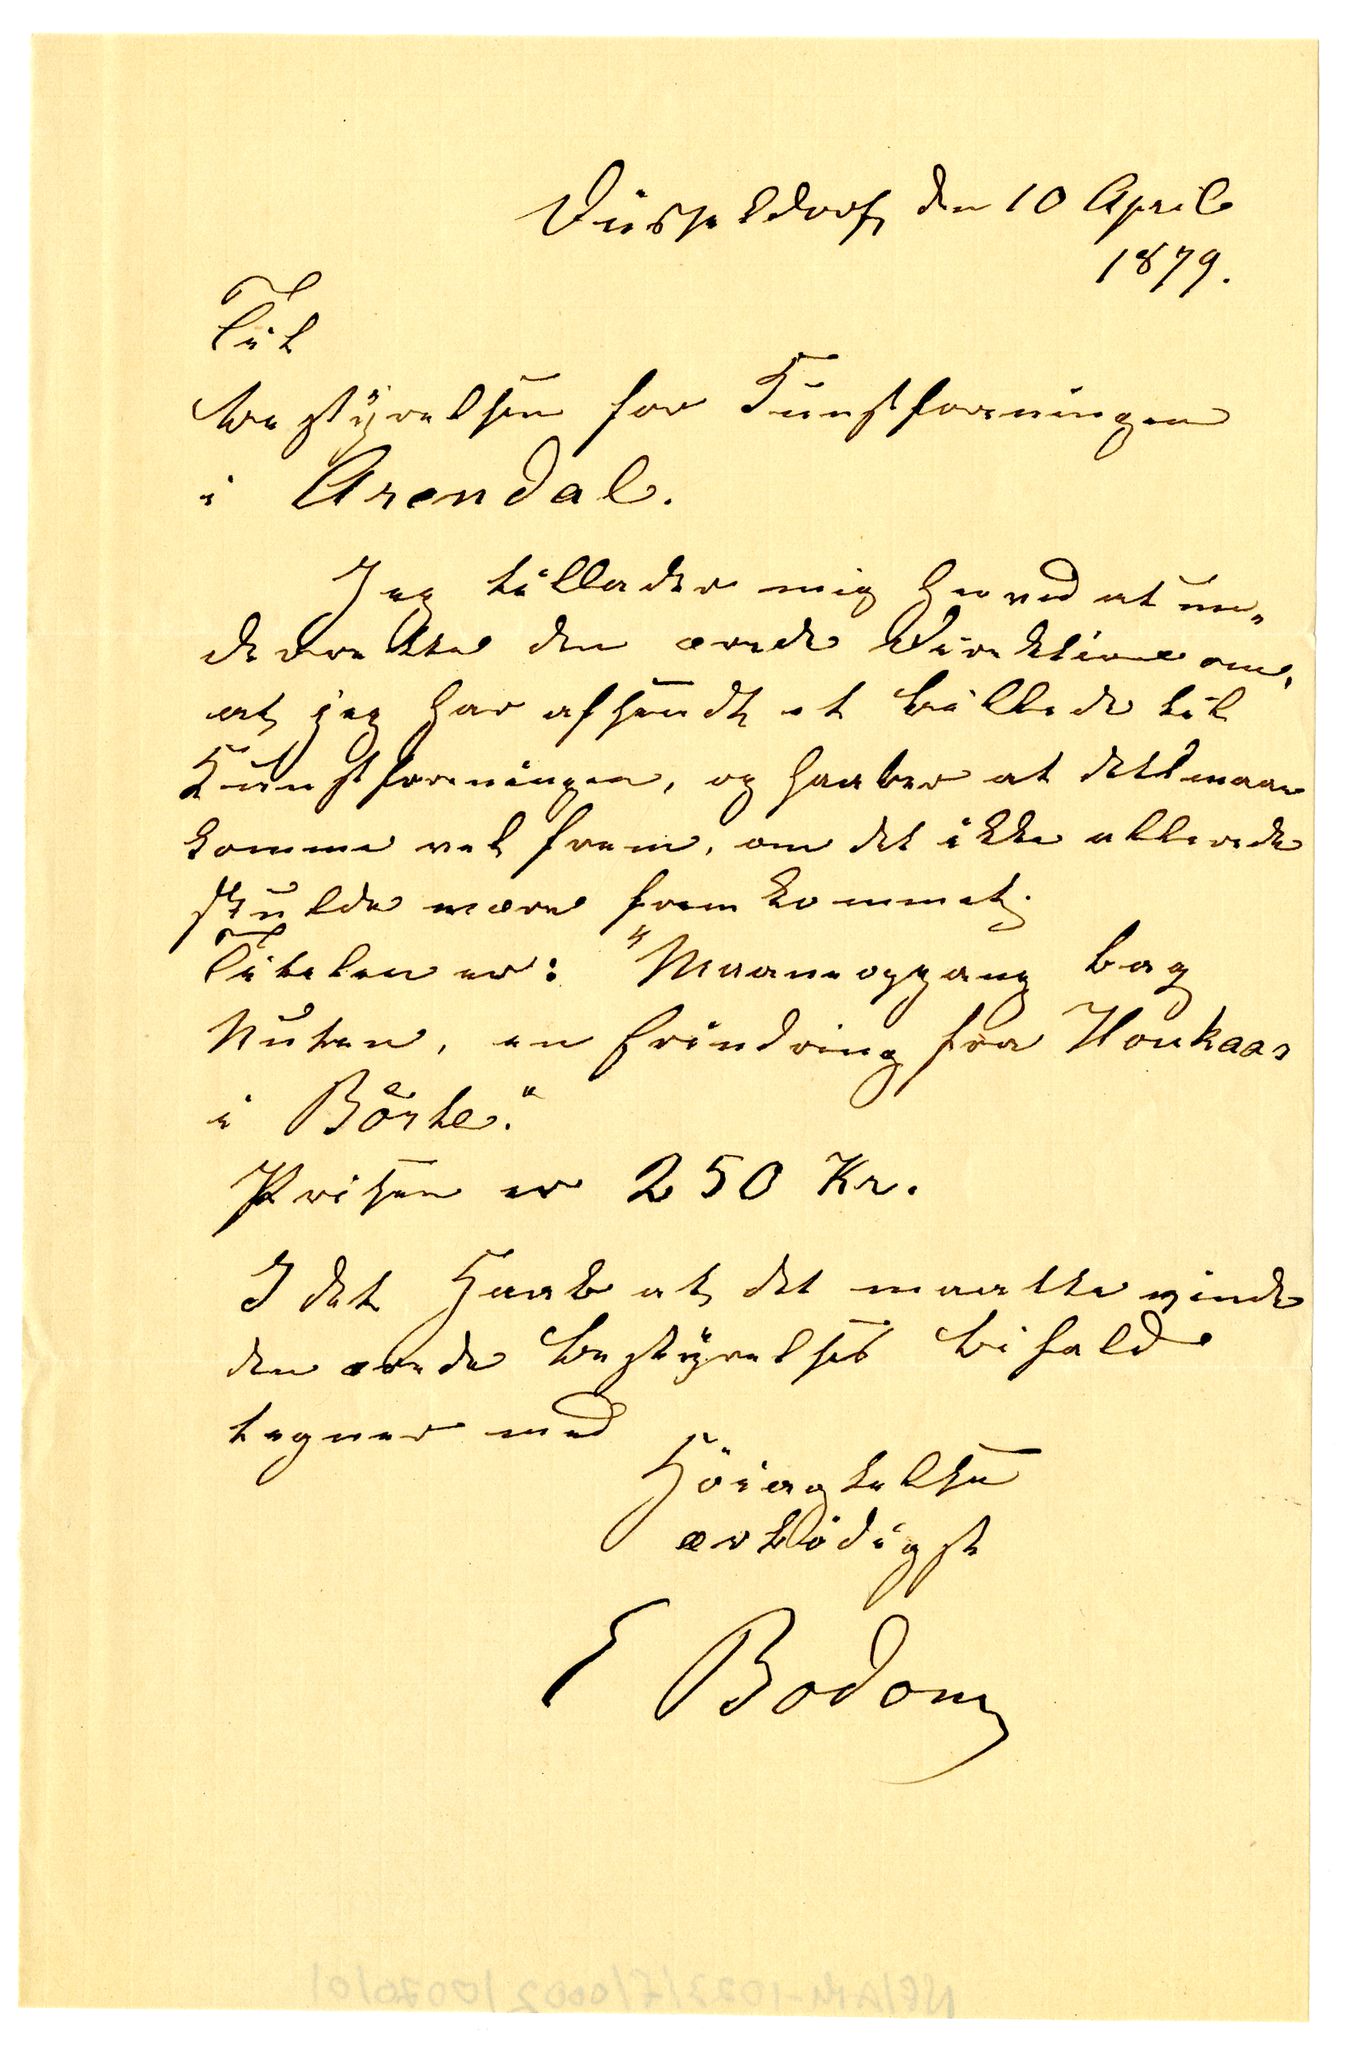 Düsseldorf, den 10 April
1879.
Til
Bestyrelsen for Kunstforeningen
i Arendal.
Jeg tillader mig herved at un-
derrette den ærede Direktion om,
at jeg har afsendt et billede til
Kunstforeningen, og haaber at det maa
komme vel frem, om det ikke allerede
skulde være fremkommet.
Titelen er: "Maaneopgang bag
Nuten, en Erindring fra Houkaas
i Börte."
Prisen er 250 Kr.
I det Haab at det maatte vinde
den ærede Bestyrelses bifald
tegner med
Höiagtelse
ærbödigst
E Bodom
NE/AM-1023/F/0002/0070/01